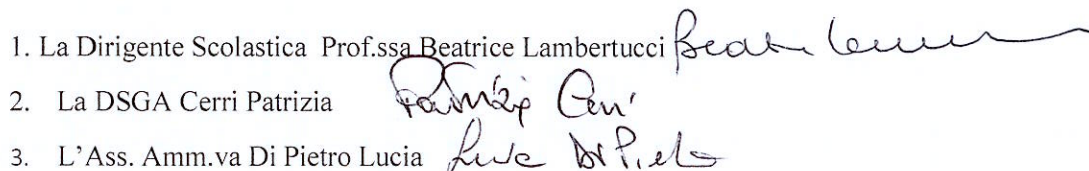 1. La Dirigente Scolastica Prof.ssa Beatrice Lambertucci Beatrice Lambertucci
2. La DSGA Cerri Patrizia Patrizia Cerri
3. L'Ass. Amm.va Di Pietro Lucia Lucia Di Pietro